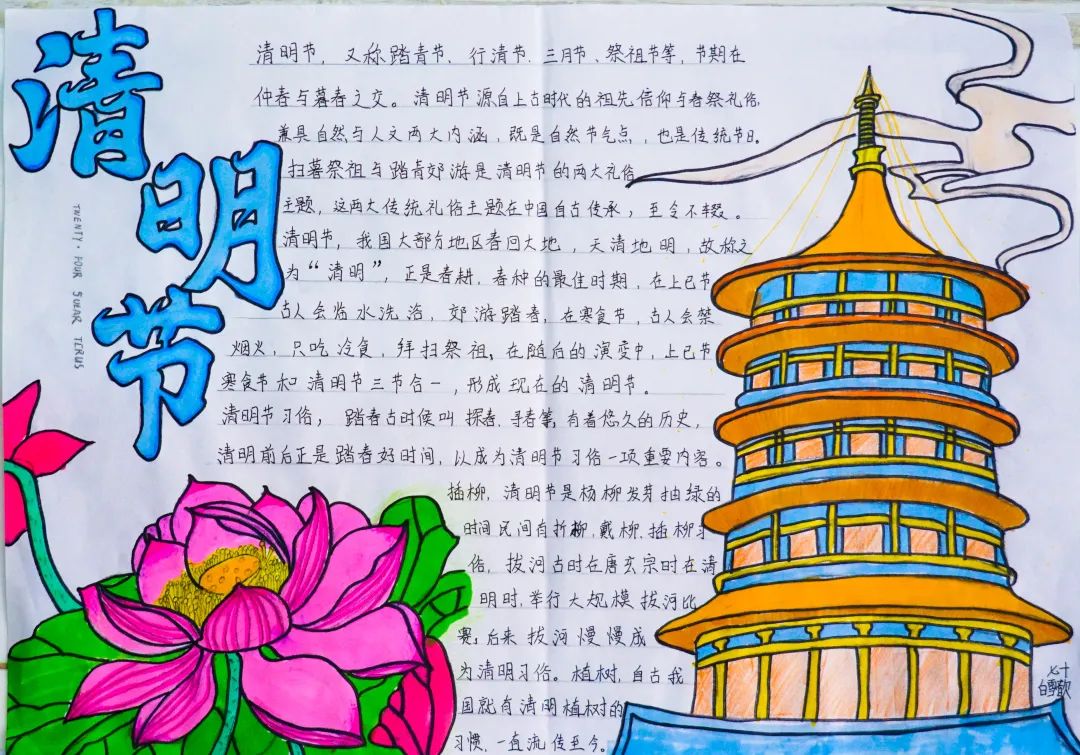 清明节
TWENTY-FOUR SULAR TERMS
清明节，又称踏青节、行清节、三月节、祭祖节等，节期在
仲春与暮春之交。清明节源自上古时代的祖先信仰与春祭礼俗，
兼具自然与人文两大内涵，既是自然节气点，也是传统节日。
扫墓祭祖与踏青郊游是清明节的两大礼俗
主题，这两大传统礼俗主题在中国自古传承，至今不辍。
清明节，我国大部分地区春回大地，天清地明，故称之
为“清明”，正是春耕、春种的最佳时期，在上巳节
古人会临水洗浴，郊游踏春，在寒食节，古人会禁
烟火，只吃冷食，拜扫祭祖。在随后的演变中，上巳节
寒食节和清明节三节合一，形成现在的清明节。
清明节习俗，踏春古时候叫探春、寻春等，有着悠久的历史，
清明前后正是踏春好时间，以成为清明节习俗一项重要内容。
插柳，清明节是杨柳发芽抽绿的
时间民间有折柳、戴柳、插柳习
俗，拔河古时在唐玄宗时在清
明时，举行大规模拔河比
赛，后来拔河慢慢成
为清明习俗。植树，自古我
国就有清明植树的
习惯，一直流传至今。
七十
白